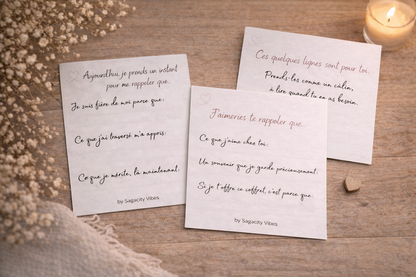 Aujourd'hui, je prends un instant
pour me rappeler que...
Je suis fière de moi parce que:
Ce que j'ai traversé m'a appris:
Ce que je mérite, là maintenant:
by Sagacity Vibes
J'aimeries te rappeler que...
Ce que j'aime chez toi:
Un souvenir que je garde précieusement:
Si je t'offre ce coffret, c'est parce que:
by Sagacity Vibes
Ces quelques lignes sont pour toi.
Prends-les comme un câlin,
à lire quand tu en as besoin.